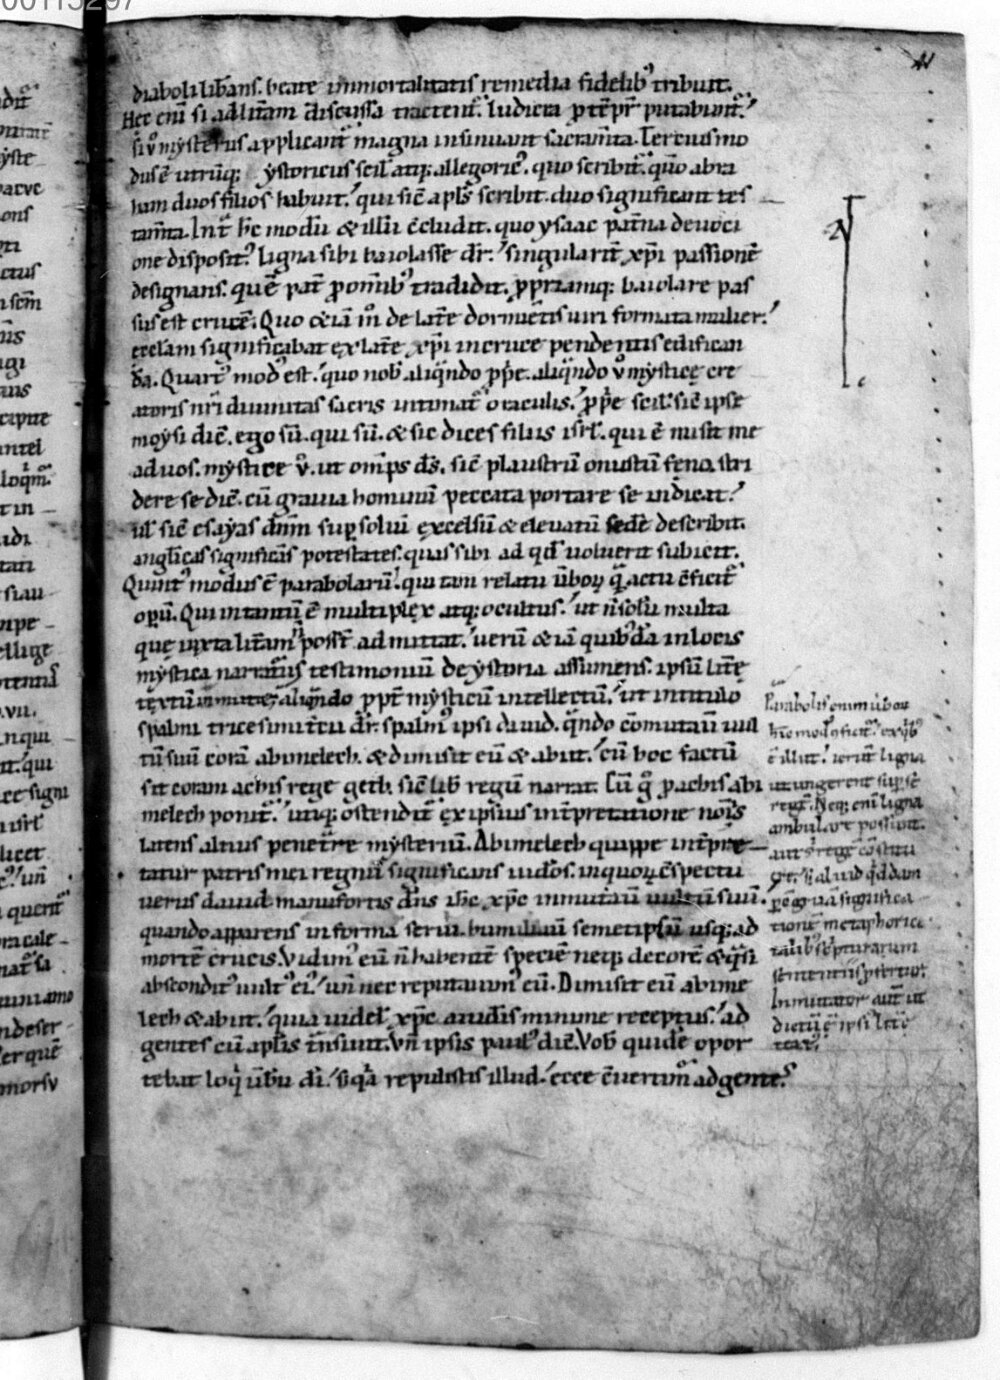 diaboli lib̄ans. beate inmortalitatis remedia fidelib᷒ tribuit.
Hec eni᷒ si ad litā̄m discussa tractent᷒. ludicra putabunt᷒.
si v̊ mysteriis applicant᷒ magna insinuant sacram̄ta. Tercius mo
dus ē utrūq; ystoricus scil᷒ atq; allegoric᷒. quo scribit᷒. qūo abra
ham duos filios habuit. qui sic̄ apl̄s scribit. duo significant tes
tam̄ta. Int᷒ hc̄ modū & illū c̄cludit᷒. quo ysaac pat̄na deuoci
one disposit᷒ ligna sibi baiolasse dr̄. singularit̄ xp̄i passionē
designans. quē pat̄ p̄ om̄ib᷒ tradidit. ppriamq; baiolare pas
sus est crucē. Quo & iā m̊ de lat̄e dormiētis uiri formata mulier.
ecclām significabat ex lat̄e xp̄i in cruce pendentis edifican
dā. Quart᷒ mod᷒ est. quo nob᷒ aliqn̄do pp̄e. aliqn̄do v̊ mystice cre
atoris nr̄i diuinitas sacris intimat᷒ oraculis. pp̄e scil᷒ sic̄ ipse
moysi dic̄. ego sū. qui sū. & sic dices filiis isrl̄. qui ē misit me
ad uos. mystice v̊. ut om̄ps ds̄. sic̄ plaustrū onustū feno. stri
dere se dic̄. cū grauia hominū peccata portare se indicat.
ul᷒ sic̄ esayas dn̄m sup soliū excelsū & eleuatū sedē describit.
anglicas significās potestates. quas sibi ad qd̄ uoluerit subicit.
Quint᷒ modus ē parabolarū. qui tam relatu ūborꝝ q̄ actu efficit᷒
opū. Qui in tantū ē multiplex atq; ocultus. ut n̄ solū multa
que iuxta litā̄m poss̄t admittat. uerū & iā quib᷒dā in locis
mystica narratus testimoniū de ystoria assumens. ipsū lit̄e
textū inmutet aliqn̄do ppt̄ mysticū intellectū. ut in titulo
spalmi tricesimi t̄cii dr̄. spalm᷒ ipsi dauid. qn̄do cōmutauit uul
tū suū corā abimelech. & dimisit eū & abiit. cū hoc factū
sit coram achis rege geth. sic̄ lib᷒ regum narrat. Cū g̊ p achis abi
melech ponit᷒. utiq; ostendit᷒ ex ipsius int̄pretatione nōis
latens altius penetrare mysteriū. Abimelech quippe int̄pre
tatur patris mei regnū significans iudeos. in quorꝝ c̄spectu
uerus dauid. manu fortis dn̄s ihc̄ xp̄c inmutauit uultū suū.
quando apparens in forma serui. humiliauit semetipsū usq; ad
mortē crucis. Vidim᷒ eū n̄ habentē speciē neq; decorē & q̄si
abscondit᷒ uult᷒ ei᷒. un̄ nec reputauim᷒ eū. Dimisit eū abime
lech & abiit. quia uidel᷒ xp̄c a iudeis minime receptus. ad
gentes cū apl̄is t̄nsiuit. Un̄ ipsis paul᷒ dic̄. Vob᷒ quidē opor
tebat loqi ūbū di᷒. s; qa repulistis illud. ecce c̄uertim᷒ ad gentes.
Parabolis enim ūborꝝ
hic̄ mod᷒ efficit᷒. ex qib᷒
ē illud. ierūt ligna
ut ungerent sup se
regē. Neq; enī ligna
ambulare possunt.
aut s̄ regē cōstitu
ere. s; aliud qddam
significa
tionē metaphorice
talib᷒ sc̄pturarum
sententiis
Inmutator aut̄ ut
dictū ē ipsi᷒ lit̄e
text᷒.